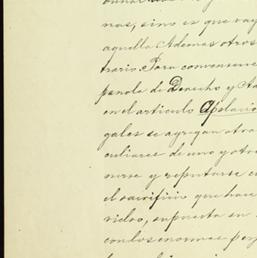 nas, sino es que vay
aquella. Ademas otros
trario. Para convencerse
pañola de Derecho y Ad
en el articulo Apelacio
gales se agregan otra
culiares de uno y otro
nirse y reputarse c
el sacrificio que hace
vidro, supuesta en
con los enormes per